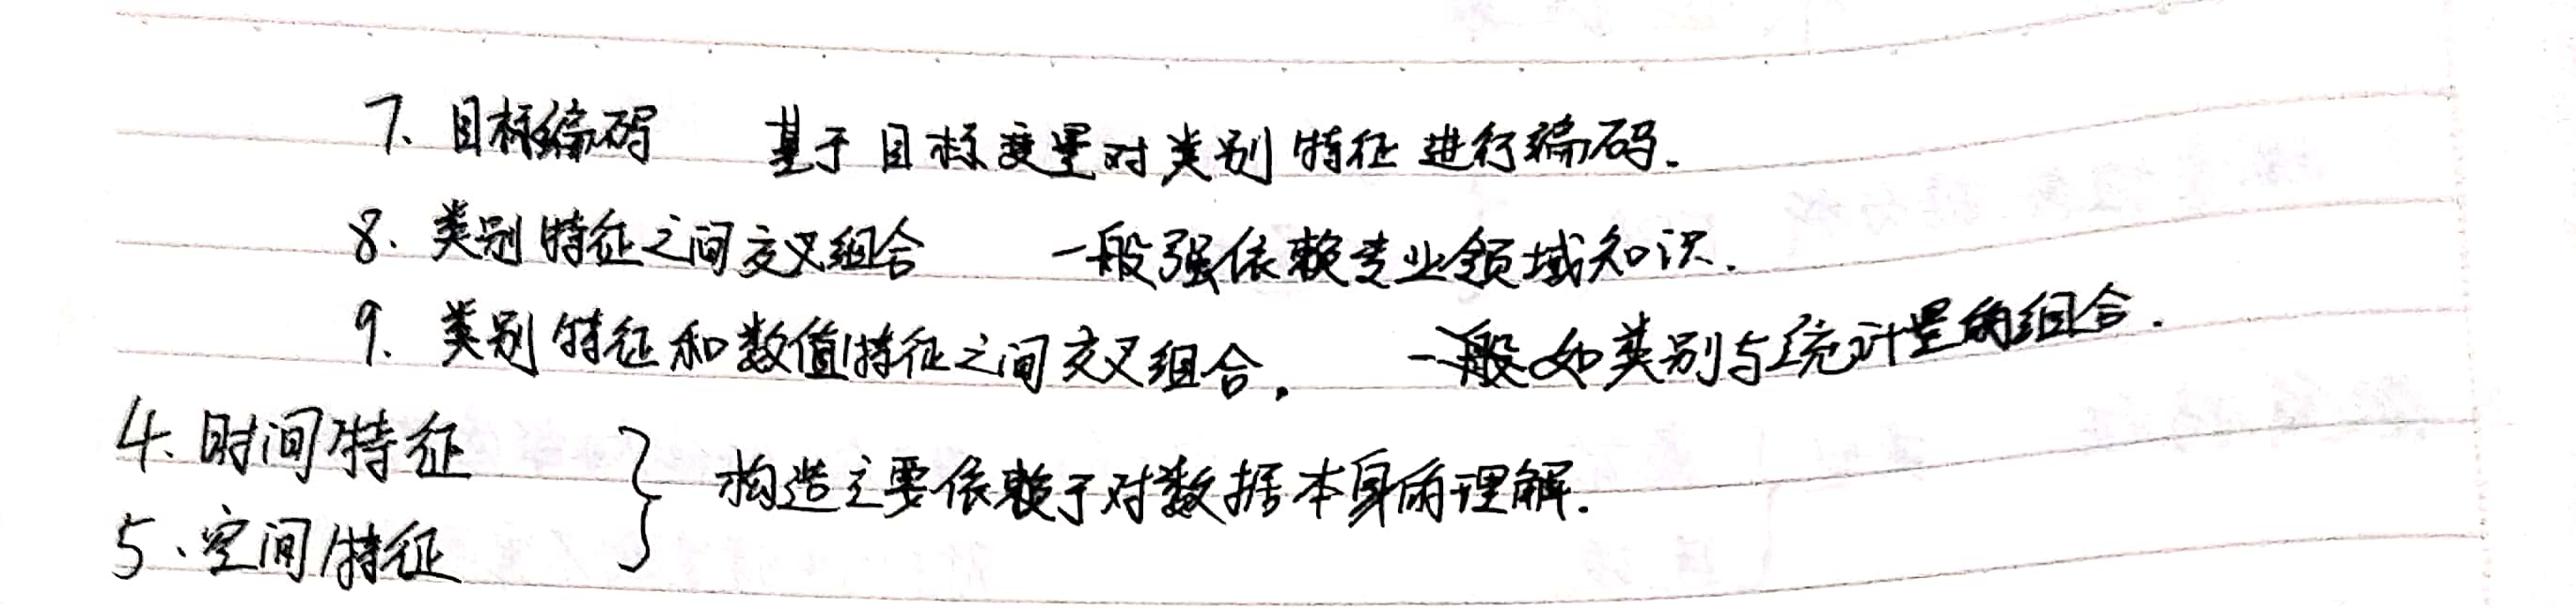 7、目标编码 基于目标变量对类别特征进行编码.
8、类别特征之间交叉组合 一般强依赖专业领域知识.
9、类别特征和数值特征之间交叉组合. 一般如类别与统计量的组合.
4、时间特征
} 构造主要依赖于对数据本身的理解.
5、空间特征